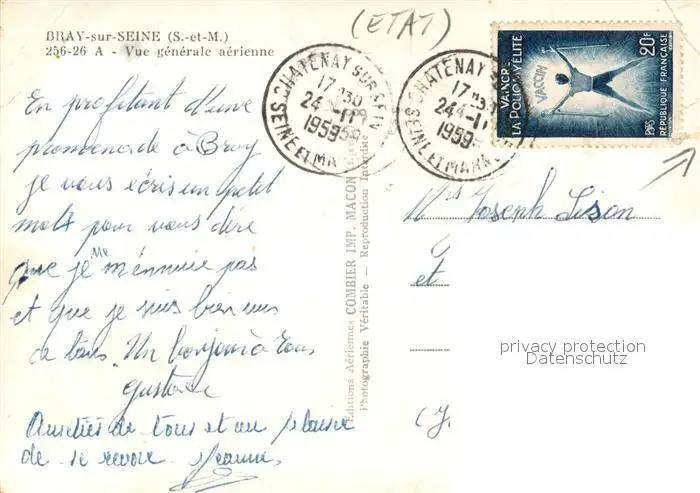 BRAY-sur-SEINE (S.-et-M.)
256-26 A - Vue générale aérienne
(ETAT)
CHATENAY SUR SEINE
17 H30
24 -11
1959
SEINE ET MARNE
CHATENAY S
17 H30
24 -11
1959
SEINE ET MARNE
VAINCRE
LA POLIOMYÉLITE
VACCIN
20F
POSTES
RÉPUBLIQUE FRANÇAISE
En profitant d'une
promenade à Bray
je vous écris un petit
mots pour vous dire
que je m'ennuie pas
et que je suis bien
a tous. Un bonjour à tous
Gustave
Amitiés de tous et au plaisir
de se revoir. Jeanne
Editions Aériennes COMBIER IMP. MACON
Photographie Véritable - Reproduction Interdite
Mrs Joseph Sison
et
privacy protection
Datenschutz